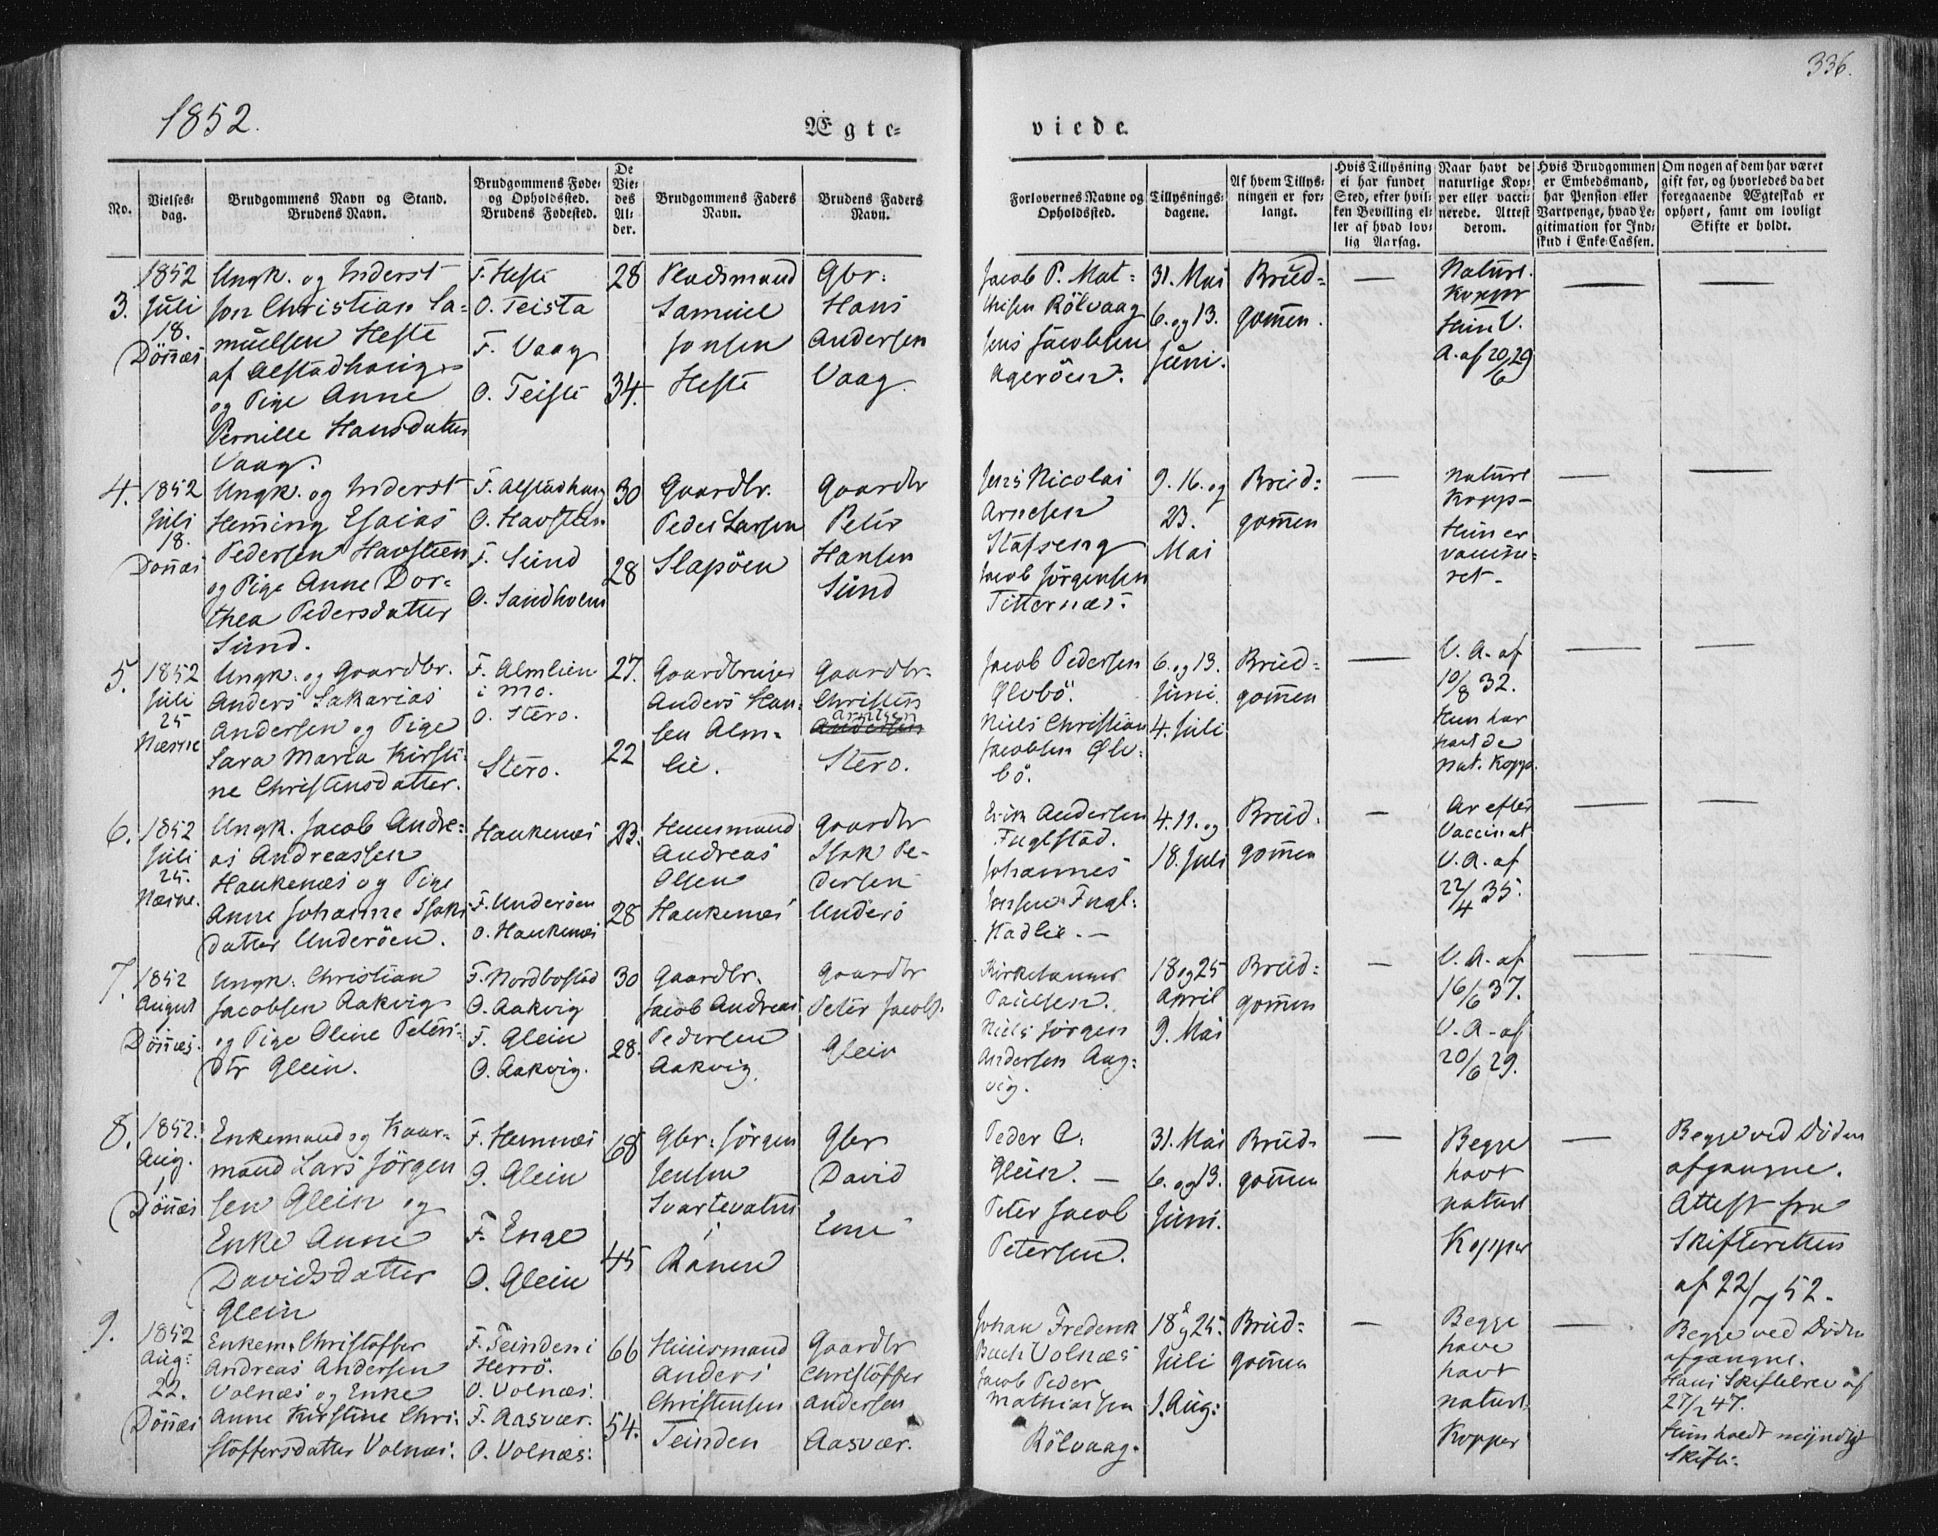 336.
1852.
Ægte-
viede.
No.
Vielses-
dag.
Brudgommens Navn og Stand.
Brudens Navn.
Brudgommens Føde-
og Opholdssted.
Brudens Fødested.
De
Vie-
des
Al-
der.
Brudgommens Faders
Navn.
Brudens Faders
Navn.
Forlovernes Navne og
Opholdssted.
Tillysnings-
dagene.
Af hvem Tillys-
ningen er for-
langt.
Hvis Tillysning
ei har fundet
Sted, efter hvil-
ken Bevilling el-
ler af hvad lov-
lig Aarsag.
Naar havt de
naturlige Kop-
per eller vacci-
nerede. Attest
derom.
Hvis Brudgommen
er Embedsmand,
har Pension eller
Vartpenge, hvad Le-
gitimation for Ind-
skud i Enke-Cassen.
Om nogen af dem har været
gift for, og hvorledes da det
foregaaende Ægteskab er
ophørt, samt om lovligt
Skifte er holdt.
3.
1852
Juli
18.
Dönnes
Ungk. og Inderst
Jon Christian Sa-
muelsen Heste
af Alstadhaug
og Pige Anne
Pernille Hansdatter
Vaag.
F. Heste
O. Teista
F. Vaag
O. Teiste
28
34.
Pladsmand
Samuel
Jonsen
Heste
Gbr:
Hans
Andersen
Vaag.
Jacob P. Mat-
thisen Rölvaag
Jens Jacobsen
Ageröen.
31. Mai
6. og 13.
Juni.
Brud-
gommen.
—
Naturl.
Kopper
Hun V.
A. af 20/6 29
—
—
4.
1852
Juli
18.
Dönnes
Ungk. og Inderst
Hemming Esaias
Pedersen Havstien
og Pige Anne Dor-
thea Pedersdatter
Sund.
F. Alstadhaug
O. Havstien
F. Sund
O. Sandholm
30
28
Gaardbr.
Peder Larsen
Slapöen
Gaardbr
Peter
Hansen
Sund
Jens Nicolai
Arnesen
Stafseng
Jacob Jörgensen
Titternæs.
9. 16. og
23.
Mai
Brud-
gommen
—
Naturl
Kopp-
Hun er
vaccine-
ret-
—
—
5.
1852
Juli
25
Næsne
Ungk. og Gaardbr.
Anders Sakarias
Andersen og Pige
Sara Maria Kirsti-
ne Christensdatter.
F. Almlien
i Mo.
O. Stero.
Stero.
27.
22
Gaardbruger
Anders Han-
sen Alm-
lie.
Gaardbr.
Christen
Arntsen
Andersen
Stero.
Jacob Pedersen
Ølvbö.
Niels Christian
Jacobsen Ølv-
bö.
6. og 13.
Juni.
4. Juli
Brud-
gommen
—
V. A. af
10/8 32.
Hun har
havt de
nat. Kopp.
—
—
6.
1852
Juli
25.
Næsne.
Ungk. Jacob Andre-
as Andreassen
Haukenæs og Pige
Anne Johanne Isaks
datter Underöen.
Haukenæs
F. Underöen
O. Haukenæs
23.
28
Huusmand
Andreas
Olsen
Haukenæs
Gaardbr
Isak Pe-
dersen
Underö
Erik Andersen
Fuglstad.
Johannes
Jonsen Fugl-
stadlie. —
4. 11. og
18. Juli
Brud.
gommen
—
Ar efter
Vaccinat
V. A. af
22/4 35.
—
—
7.
1852
August
Dönnes.
Ungk. Christian
Jacobsen Aakvig
og Pige Oline Peters-
dtr Glein.
F. Nordbostad
O. Aakvig
F. Glein
O. Aakvig.
30
28.
Gaardbr.
Jacob Andreas
Pedersen
Aakvig.
Gaardbr
Peter Jacobs.
Glein
Kirkesanger
Paulsen.
Niels Jörgen
Andersen Aag-
vig.
18 og 25
April
9. Mai
Brud-
gommen
—
V. A. af
16/6 37.
V. A. af
20/6 29.
—
—
8.
1852.
Aug.
1
Dönnes
Enkemand og Kaar-
mand Lars Jörgen
sen Glein og
Enke Anne
Davidsdatter
Glein
F. Hemnæs
O. Glein
F. Enge
O. Glein
68
45
Gbr: Jörgen
Jensen
Svartevatn
i
Ranen
Gbr
David
Peder C.
Glein. —
Peter Jacob
Petersen.
31. Mai
6. og 13.
Juni.
Brud-
gommen
—
Begge
havt
naturl
Kopper
—
Begge ved Döden
afgangne.
Attest fra
Skifteretten
af 22/7 52.
9.
1852
Aug:
22.
Dönnes
Enkem. Christoffer
Andreas Andersen
Volnæs og Enke
Anne Kirstine Chri-
stoffersdatter Volnæs.
F. Teinden i
Herrö.
O. Volnæs.
F. Aasvær.
O. Volnæs.
66
54.
Huusmand
Anders
Christensen
Teinden
Gaardbr
Christoffer
Andersen
Aasvær.
Johan Frederik
Bach Volnæs
Jacob Peder
Mathiassen
Rölvaag.
18 og 25.
Juli
1. Aug:
Brud-
gommen
—
Begge
have
havt
naturl.
Kopper
—
Begge ved Döden
afgangne.
Hans Skiftebrev af
27/2 47.
Hun holdt myndigt
Skifte.